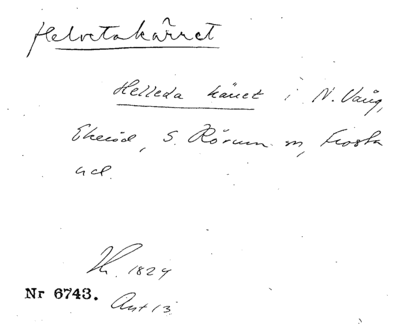 Helvetakärret
Helleda käret i N. Vång,
Ekeröd, S. Rörum m, Frosta
hd.
1824
Nr 6743. Akt 13.